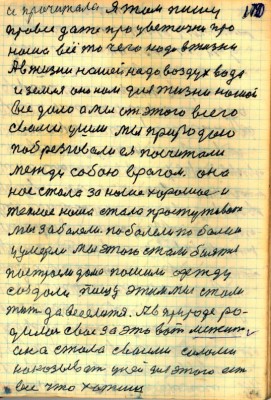 и прочитала Я там пишу 170
про все даже про цветочки про
наша всё то чего надо в жизни
А в жизни нашей надо воздух вода
и земля оно нам для жизни нашей
Все дало а мы от этого всего
своими ушли мы природою
побрезговали ея посчитали
между собою врагом она
нас стала за наше хорошее и
теплое наша стала простуживать
мы заболели поболели по болели
и умерли мы этого стали бояться
построили дом пошили одежду
создали пищу этим мы стали
жить да веселится. А в природе ро-
дился свое за это вот
она стала своими силами
наказывать у ней для этого есть
все что хотишь